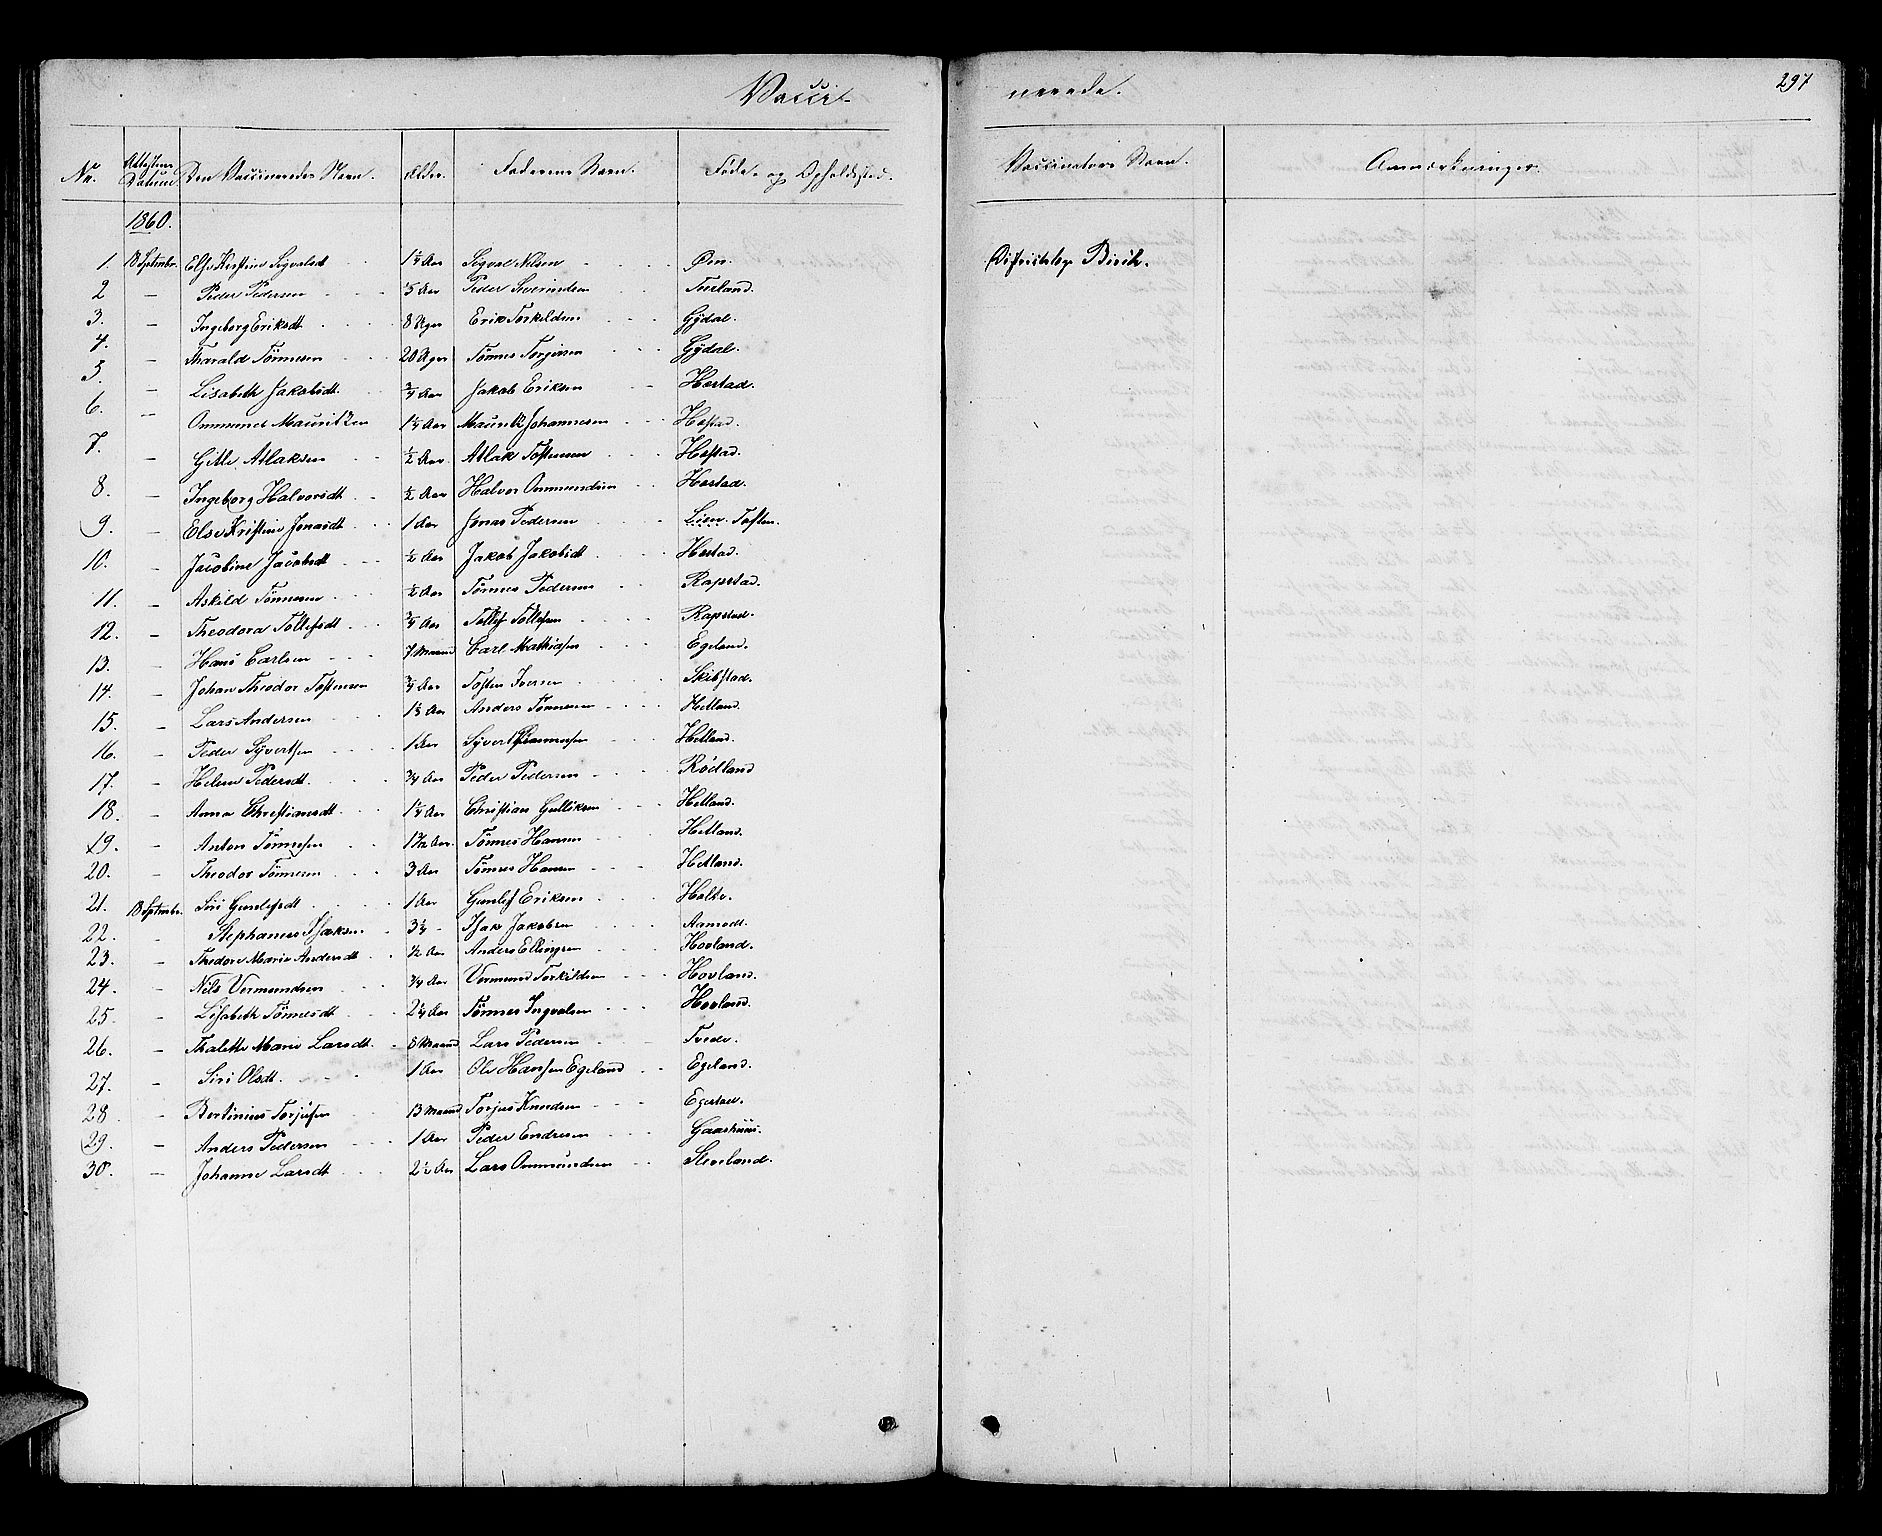 Vacci-
neerede.
297
Nr. Attestens Datum. Den Vaccineredes Navn. Alder. Faderens Navn. Føde- og Opholdssted. Vaccinateurs Navn. Anmærkninger.
1860.
1. 18 Septembr. Else Kirstine Sigvalsdt 1¼ Aar Sigval Nilsen Øen. Districtslæge Birch.
2 — Peder Pedersen Peder Severindsen
3. — Ingeborg Eriksdt 8 Uger Erik Torkildsen Gydal.
4. — Tharald Tönnesen 20 Uger Tönnes Torgersen Gydal.
5. — Lisabeth Jakobsdt. ¾ Aar Jakob Eriksen Hæstad.
6. — Ommund Mauritzen 1¼ Aar Mauritz Johannesen Hæstad.
7. — Gitle Atlaksen ½ Aar Atlak Tostensen Hæstad.
8. — Ingeborg Halvorsdt ½ Aar Halvor Ommundsen Hæstad.
9. — Else Kristine Jonasdt 1 Aar Jonas Pedersen Lien. Tosten.
10. — Jacobine Jacobsdt ½ Aar Jakob Jakobsdt Hæstad.
11. — Askild Tönnesen ½ Aar Tönnes Pedersen Rapstad.
12. — Theodora Tollefsdt ¾ Aar Tollef Tollefsen Rapstad.
13. — Hans Carlsen 7 Maaned Carl Mathiasen Egeland.
14. — Johan Theodor Tostensen ¾ Aar Tosten Iversen Skibstad.
15. — Lars Andersen Anders Tönnesen Hetland.
16. — Peder Syvertsen 1 Aar Syvert Hetland.
17. — Helene Pedersdt. ¾ Aar Peder Pedersen Rödland
18. — Anna Christiansdt 1¼ Aar Christian Gulliksen Hetland.
19. — Anton Tönnesen Tönnes Hansen Hetland.
20. — Theodor Tönnesen 3 Aar Tönnes Hansen Hetland.
21. 18 Septmbr. Siri Gunlefsdt 1 Aar Gunlef Eriksen Holte.
22. — Stephanus Isaksen 3½ - Isak Jakobsen Aamodt.
23. — Thedore Marie Andersdt ½ Aar Anders Ellingsen Hovland.
24. — Nils Vermundsen ¾ Aar Vermund Torkildsen Hovland.
25. — Lisabeth Tönnesdt 2¼ Aar Tönnes Ingvalsen Hovland.
26. — Thalette Marie Larsdt. 8 Maaned Lars Pedersen Tvede.
27. — Siri Olsdt. 1 Aar Ole Hansen Egeland Egeland.
28. — Bertinius Torjusen 13 Maaned Torjus Knudsen Egestad.
29. — Anders Pedersen 1 Aar Peder Endresen Gaashuus.
30. — Johanne Larsdt 2½ Aar Lars Ommundsen Sleveland.